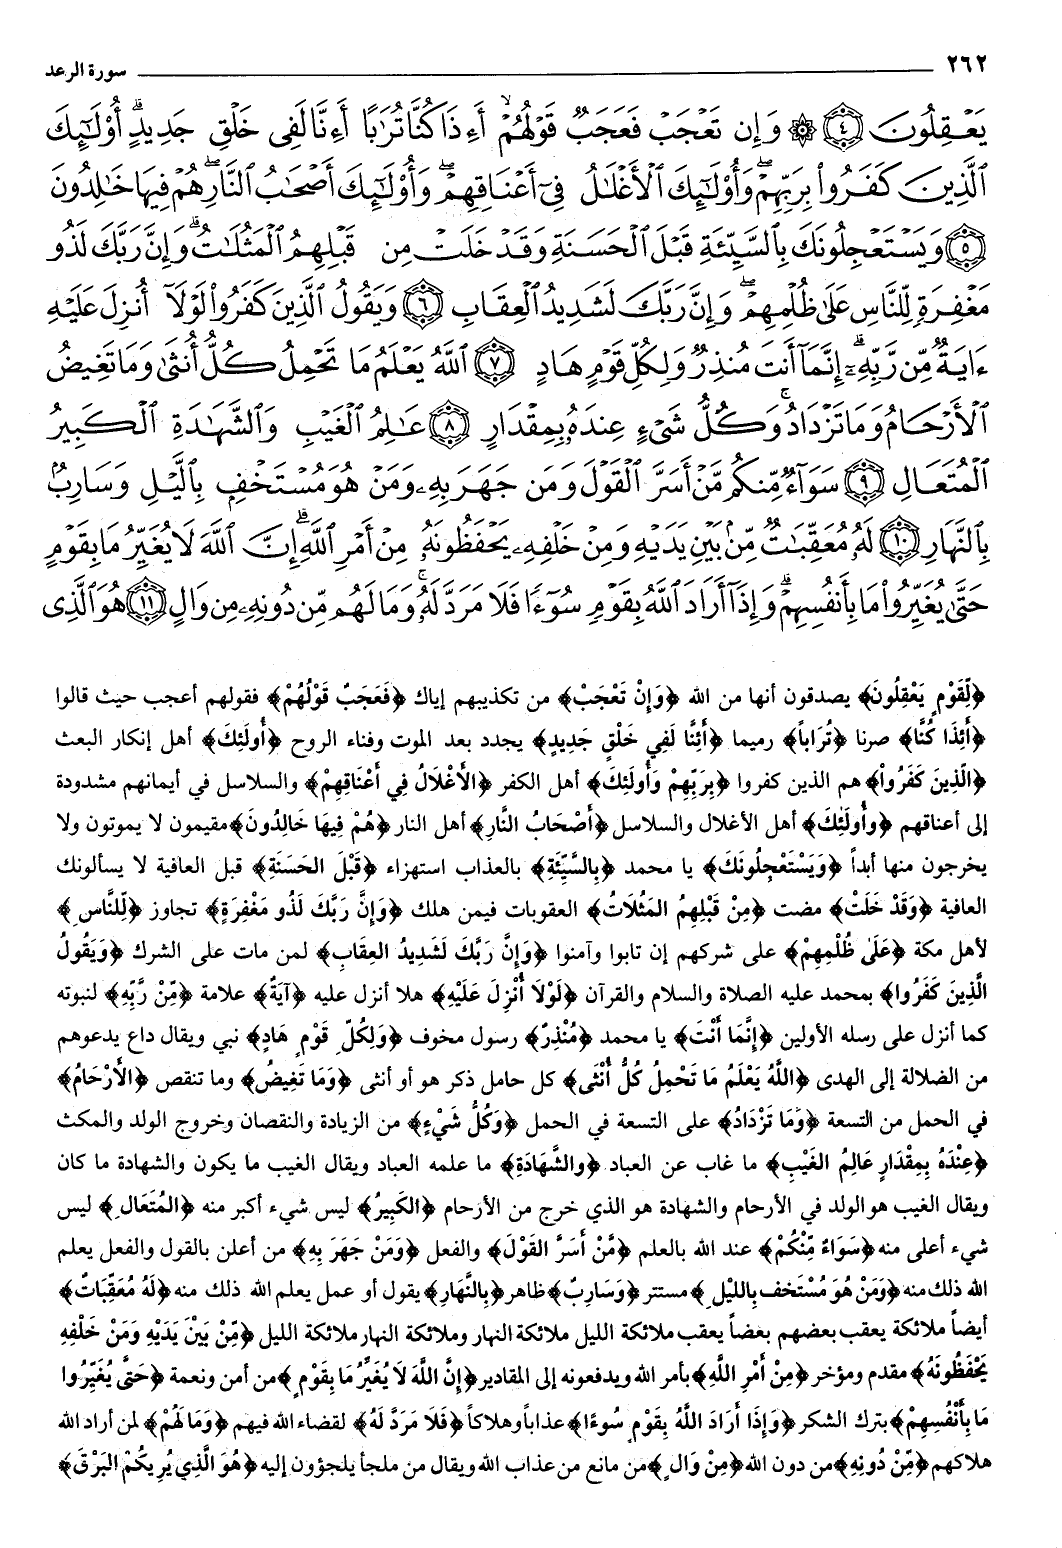 ٢٦٢ سورة الرعد
يَعْقِلُونَ ﴿٤﴾ ۞ وَإِن تَعْجَبْ فَعَجَبٌ قَوْلُهُمْ أَءِذَا كُنَّا تُرَٰبًا أَءِنَّا لَفِى خَلْقٍ جَدِيدٍ ۗ أُو۟لَٰٓئِكَ
ٱلَّذِينَ كَفَرُوا۟ بِرَبِّهِمْ ۖ وَأُو۟لَٰٓئِكَ ٱلْأَغْلَٰلُ فِىٓ أَعْنَاقِهِمْ ۖ وَأُو۟لَٰٓئِكَ أَصْحَٰبُ ٱلنَّارِ ۖ هُمْ فِيهَا خَٰلِدُونَ
﴿٥﴾ وَيَسْتَعْجِلُونَكَ بِٱلسَّيِّئَةِ قَبْلَ ٱلْحَسَنَةِ وَقَدْ خَلَتْ مِن قَبْلِهِمُ ٱلْمَثُلَٰتُ ۗ وَإِنَّ رَبَّكَ لَذُو
مَغْفِرَةٍ لِّلنَّاسِ عَلَىٰ ظُلْمِهِمْ ۖ وَإِنَّ رَبَّكَ لَشَدِيدُ ٱلْعِقَابِ ﴿٦﴾ وَيَقُولُ ٱلَّذِينَ كَفَرُوا۟ لَوْلَآ أُنزِلَ عَلَيْهِ
ءَايَةٌ مِّن رَّبِّهِۦٓ ۗ إِنَّمَآ أَنتَ مُنذِرٌ ۖ وَلِكُلِّ قَوْمٍ هَادٍ ﴿٧﴾ ٱللَّهُ يَعْلَمُ مَا تَحْمِلُ كُلُّ أُنثَىٰ وَمَا تَغِيضُ
ٱلْأَرْحَامُ وَمَا تَزْدَادُ ۚ وَكُلُّ شَىْءٍ عِندَهُۥ بِمِقْدَارٍ ﴿٨﴾ عَٰلِمُ ٱلْغَيْبِ وَٱلشَّهَٰدَةِ ٱلْكَبِيرُ
ٱلْمُتَعَالِ ﴿٩﴾ سَوَآءٌ مِّنكُم مَّنْ أَسَرَّ ٱلْقَوْلَ وَمَن جَهَرَ بِهِۦ وَمَنْ هُوَ مُسْتَخْفٍۭ بِٱلَّيْلِ وَسَارِبٌۢ
بِٱلنَّهَارِ ﴿١٠﴾ لَهُۥ مُعَقِّبَٰتٌ مِّنۢ بَيْنِ يَدَيْهِ وَمِنْ خَلْفِهِۦ يَحْفَظُونَهُۥ مِنْ أَمْرِ ٱللَّهِ ۗ إِنَّ ٱللَّهَ لَا يُغَيِّرُ مَا بِقَوْمٍ
حَتَّىٰ يُغَيِّرُوا۟ مَا بِأَنفُسِهِمْ ۗ وَإِذَآ أَرَادَ ٱللَّهُ بِقَوْمٍ سُوٓءًا فَلَا مَرَدَّ لَهُۥ ۚ وَمَا لَهُم مِّن دُونِهِۦ مِن وَالٍ ﴿١١﴾ هُوَ ٱلَّذِى
﴿لِّقَوْمٍ يَعْقِلُونَ﴾ يصدقون أنها من الله ﴿وَإِنْ تَعْجَبْ﴾ من تكذيبهم إياك ﴿فَعَجَبٌ قَوْلُهُمْ﴾ فقولهم أعجب حيث قالوا
﴿أَئِذَا كُنَّا﴾ صرنا ﴿تُرَاباً﴾ رميما ﴿أَئِنَّا لَفِي خَلْقٍ جَدِيدٍ﴾ يجدد بعد الموت وفناء الروح ﴿أُولَئِكَ﴾ أهل إنكار البعث
﴿الَّذِينَ كَفَرُوا﴾ هم الذين كفروا ﴿بِرَبِّهِمْ وَأُولَئِكَ﴾ أهل الكفر ﴿الأَغْلَالُ فِي أَعْنَاقِهِمْ﴾ والسلاسل في أيمانهم مشدودة
إلى أعناقهم ﴿وأُولَئِكَ﴾ أهل الأغلال والسلاسل ﴿أَصْحَابُ النَّارِ﴾ أهل النار ﴿هُمْ فِيهَا خَالِدُونَ﴾ مقيمون لا يموتون ولا
يخرجون منها أبداً ﴿وَيَسْتَعْجِلُونَكَ﴾ يا محمد ﴿بِالسَّيِّئَةِ﴾ بالعذاب استهزاء ﴿قَبْلَ الحَسَنَةِ﴾ قبل العافية لا يسألونك
العافية ﴿وَقَدْ خَلَتْ﴾ مضت ﴿مِنْ قَبْلِهِمُ المَثُلَاتُ﴾ العقوبات فيمن هلك ﴿وَإِنَّ رَبَّكَ لَذُو مَغْفِرَةٍ﴾ تجاوز ﴿لِّلنَّاسِ﴾
لأهل مكة ﴿عَلَىٰ ظُلْمِهِمْ﴾ على شركهم إن تابوا وآمنوا ﴿وَإِنَّ رَبَّكَ لَشَدِيدُ العِقَابِ﴾ لمن مات على الشرك ﴿وَيَقُولُ
الَّذِينَ كَفَرُوا﴾ بمحمد عليه الصلاة والسلام والقرآن ﴿لَوْلَا أُنْزِلَ عَلَيْهِ﴾ هلا أنزل عليه ﴿آيَةٌ﴾ علامة ﴿مِّنْ رَّبِّهِ﴾ لنبوته
كما أنزل على رسله الأولين ﴿إِنَّمَا أَنْتَ﴾ يا محمد ﴿مُنْذِرٌ﴾ رسول مخوف ﴿وَلِكُلِّ قَوْمٍ هَادٍ﴾ نبي ويقال داع يدعوهم
من الضلالة إلى الهدى ﴿اللَّهُ يَعْلَمُ مَا تَحْمِلُ كُلُّ أُنْثَى﴾ كل حامل ذكر هو أو أنثى ﴿وَمَا تَغِيضُ﴾ وما تنقص ﴿الأَرْحَامُ﴾
في الحمل من التسعة ﴿وَمَا تَزْدَادُ﴾ على التسعة في الحمل ﴿وَكُلُّ شَيْءٍ﴾ من الزيادة والنقصان وخروج الولد والمكث
﴿عِنْدَهُ بِمِقْدَارٍ عَالِمُ الغَيْبِ﴾ ما غاب عن العباد ﴿والشَّهَادَةِ﴾ ما علمه العباد ويقال الغيب ما يكون والشهادة ما كان
ويقال الغيب هو الولد في الأرحام والشهادة هو الذي خرج من الأرحام ﴿الكَبِيرُ﴾ ليس شيء أكبر منه ﴿المُتَعَالِ﴾ ليس
شيء أعلى منه ﴿سَوَاءٌ مِّنْكُمْ﴾ عند الله بالعلم ﴿مَّنْ أَسَرَّ القَوْلَ﴾ والفعل ﴿وَمَنْ جَهَرَ بِهِ﴾ من أعلن بالقول والفعل يعلم
الله ذلك منه ﴿وَمَنْ هُوَ مُسْتَخْفٍ بِاللَّيْلِ﴾ مستتر ﴿وَسَارِبٌ﴾ ظاهر ﴿بِالنَّهَارِ﴾ يقول أو عمل يعلم الله ذلك منه ﴿لَهُ مُعَقِّبَاتٌ﴾
أيضاً ملائكة يعقب بعضهم بعضاً يعقب ملائكة الليل ملائكة النهار وملائكة النهار ملائكة الليل ﴿مِّنْ بَيْنَ يَدَيْهِ وَمِنْ خَلْفِهِ
يَحْفَظُونَهُ﴾ مقدم ومؤخر ﴿مِنْ أَمْرِ اللَّهِ﴾ بأمر الله ويدفعونه إلى المقادير ﴿إِنَّ اللَّهَ لَا يُغَيِّرُ مَا بِقَوْمٍ﴾ من أمن ونعمة ﴿حَتَّى يُغَيِّرُوا
مَا بِأَنْفُسِهِمْ﴾ بترك الشكر ﴿وَإِذَا أَرَادَ اللَّهُ بِقَوْمٍ سُوءًا﴾ عذاباً وهلاكاً ﴿فَلَا مَرَدَّ لَهُ﴾ لقضاء الله فيهم ﴿وَمَا لَهُمْ﴾ لمن أراد الله
هلاكهم ﴿مِّنْ دُونِهِ﴾ من دون الله ﴿مِنْ وَالٍ﴾ من مانع من عذاب الله ويقال من ملجأ يلجؤون إليه ﴿هُوَ الَّذِي يُرِيكُمُ البَرْقَ﴾